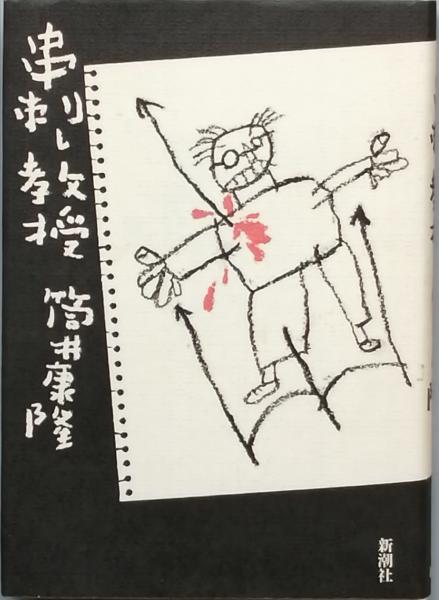 串刺し教授
筒井康隆
新潮社